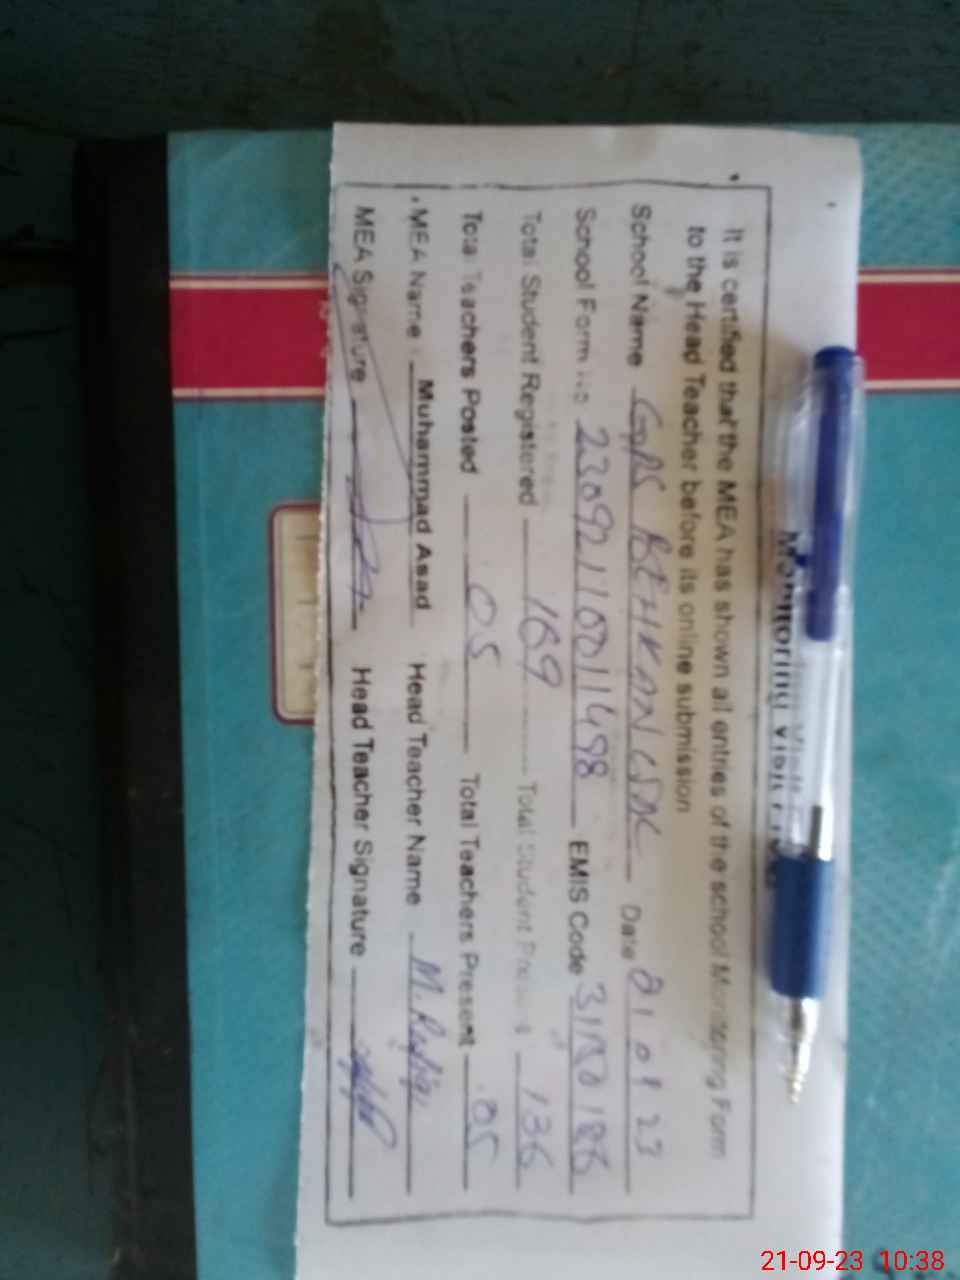 Monitoring Visit
It is certified that the MEA has shown all entries of the school Monitoring Form
to the Head Teacher before its online submission
School Name GPS Date 21 09 23
School Form No 23092110011498 EMIS Code
Total Student Registered 169 Total Student Present 136
Total Teachers Posted 05 Total Teachers Present 05
MEA Name Muhammad Asad Head Teacher Name M. Rafiq
MEA Signature Head Teacher Signature
21-09-23 10:38